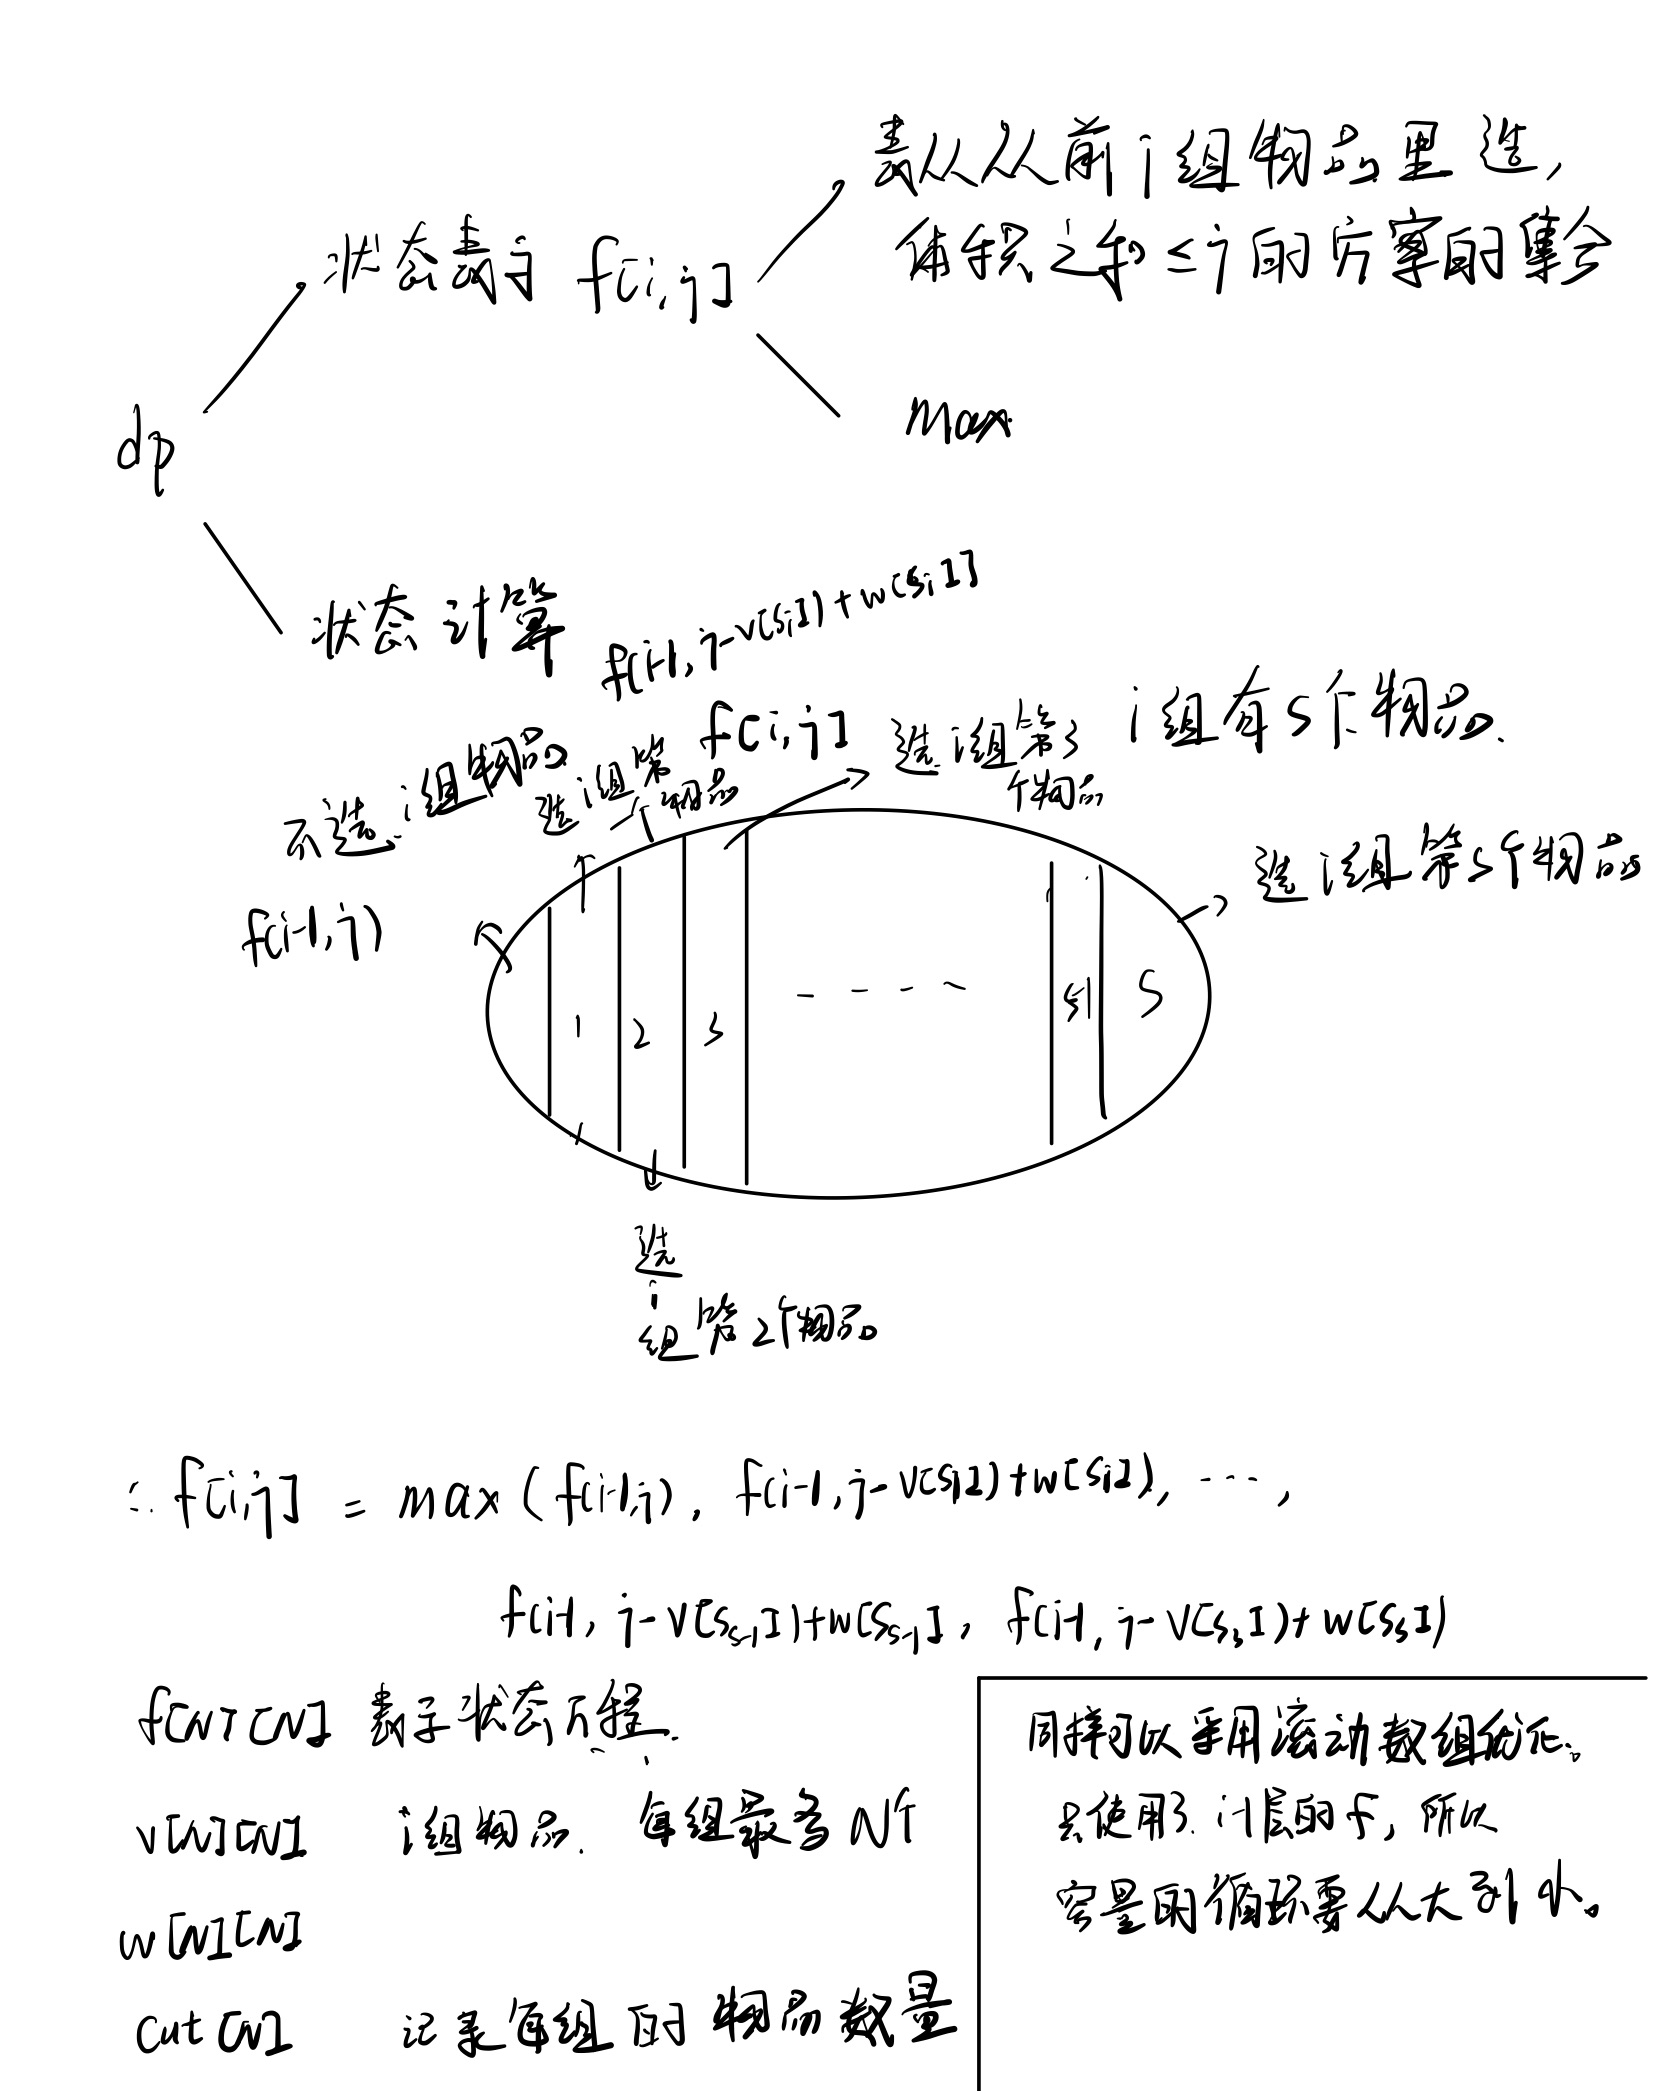 表从从前i组物品里选,
状态表示 f[i,j]
体积之和≤j的方案的集合
max
dp
状态计算
f(i-1, j-v[s_i]) + w[s_i]
f[i,j]
i组有s个物品.
不选i组物品
选i组第
一个物品
选i组第3
个物品
f(i-1,j)
选i组第s个物品
1 2 3 - - - - s-1 s
选
i
组第2个物品
∴ f[i,j] = max(f(i-1,j), f(i-1,j-v[s_1])+w[s_1], ...,
f(i-1, j-v[s_{s-1}])+w[s_{s-1}], f(i-1, j-v[s_s])+w[s_s])
f[N][N] 表示状态方程.
v[N][N] i组物品. 每组最多N个
w[N][N]
cut[N] 记录每组的物品数量
同样可以采用滚动数组优化。
只使用了i-1层的f, 所以
容量的循环要从大到小。